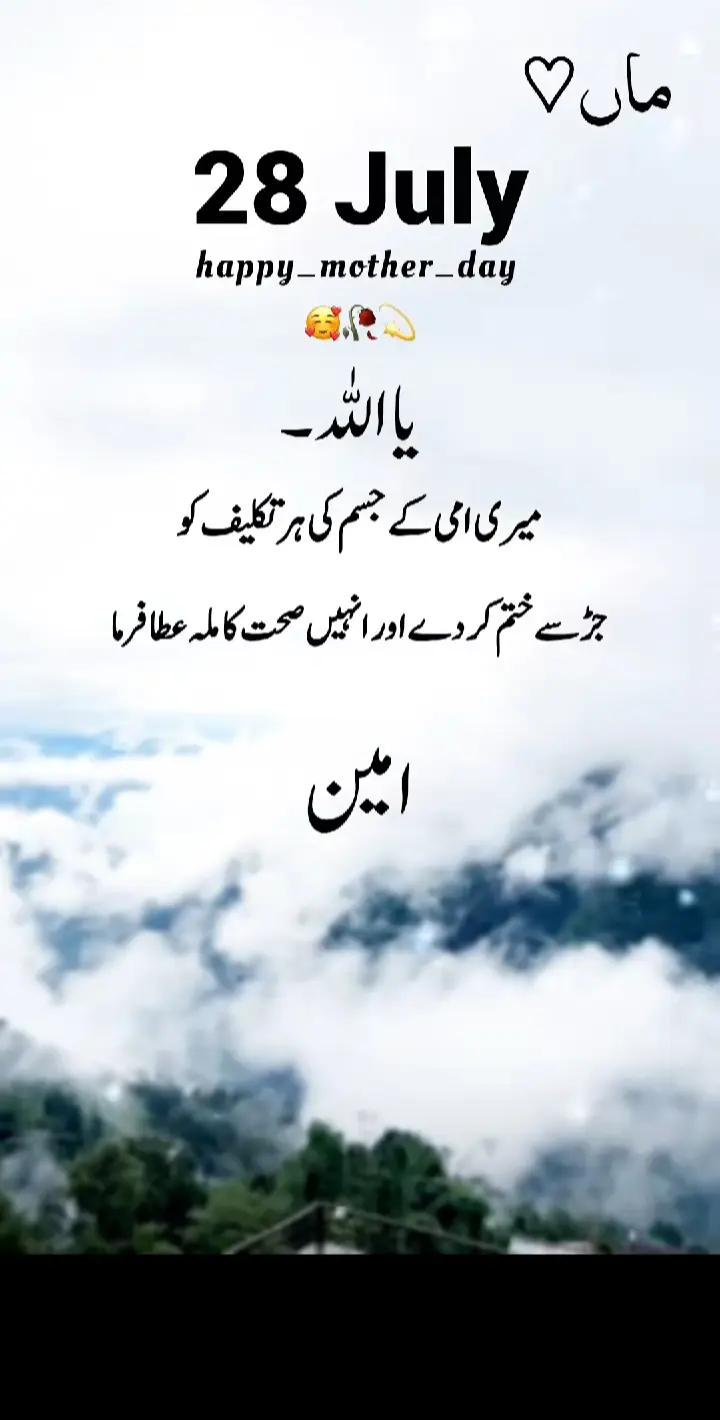 ماں♡
28 July
happy_mother_day
🥰🥀💫
یا اللہ۔
میری امی کے جسم کی ہر تکلیف کو
جڑ سے ختم کر دے اور انہیں صحت کاملہ عطا فرما
امین